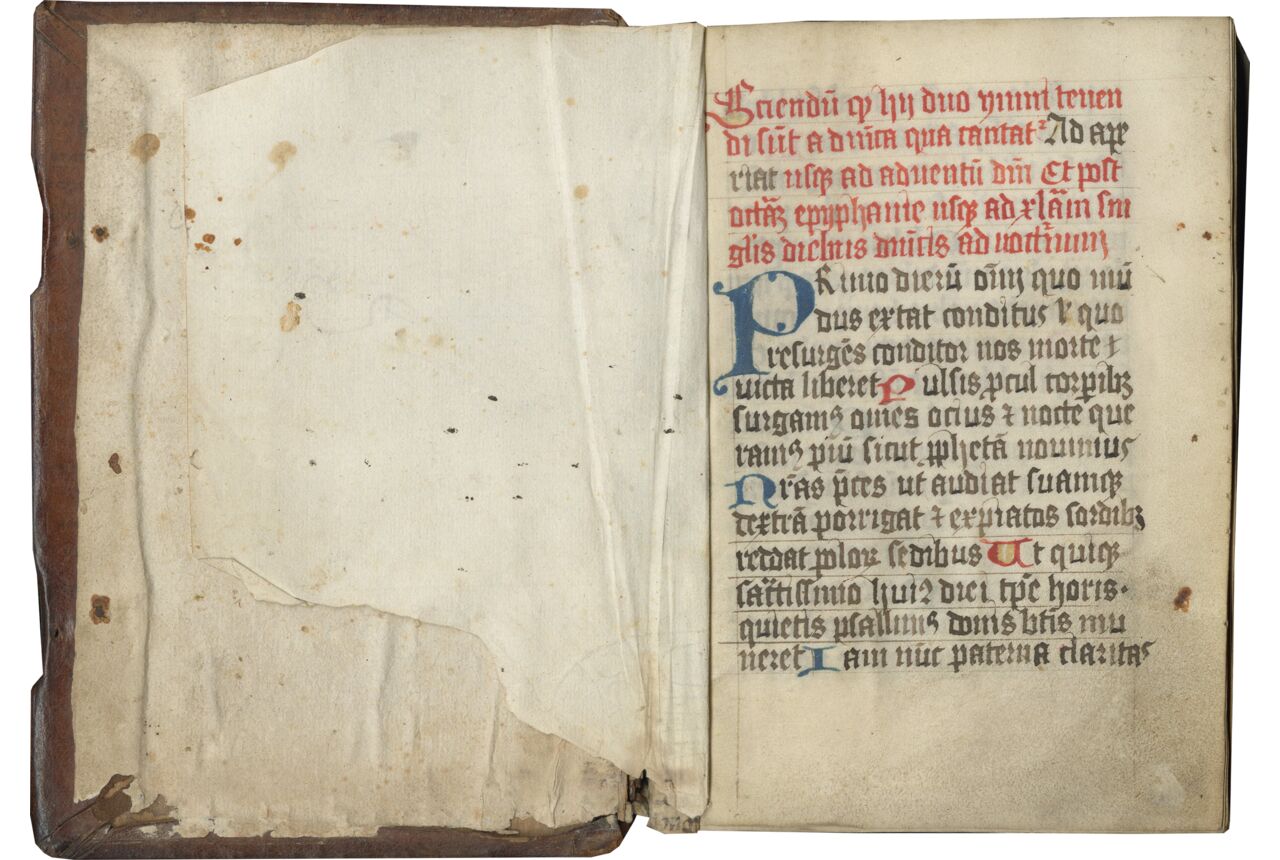 Sciendū ꝙ hij duo ymni tenen
di sūt a dn̄ica qua cantatᷣ Ad ape
riat usqꝫ ad aduentū dn̄i Et post
octāꝫ epyphanie usqꝫ ad xlām sin
glis diebus dn̄icis ad noctᷣnum
PRimo dierū om̄ quo mū
dus extat conditus ł quo
resurgēs conditor nos morte
uicta liberet Pulsis ꝓcul torꝑibꝫ
surgamꝰ om̄es ocius ⁊ nocte que
ramꝰ piū sicut ꝓphetā nouimus
Nr̄as p̄ces ut audiat suamqꝫ
dextrā porrigat ⁊ expiatos sordibꝫ
reddat poloꝝ sedibus Ut quiqꝫ
sac̄tissimo huiꝰ diei tꝑe horis·
quietis psallimꝰ donis btīs mu
neret Iam nūc paterna claritas